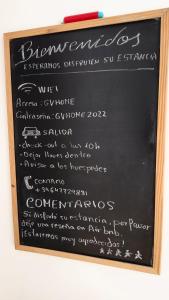 Bienvenidos
ESPERAMOS DISFRUTEN SU ESTANCIA
WIFI
Acceso: GVHOME
Contraseña: GVHOME2022
SALIDA
-check-out a las 10h
-Dejar llaves dentro
-Avisar a los huéspedes
CONTACTO
COMENTARIOS
Si disfrutó su estancia, por favor
deje una reseña en Airbnb,
¡Estaremos muy agradecidos!